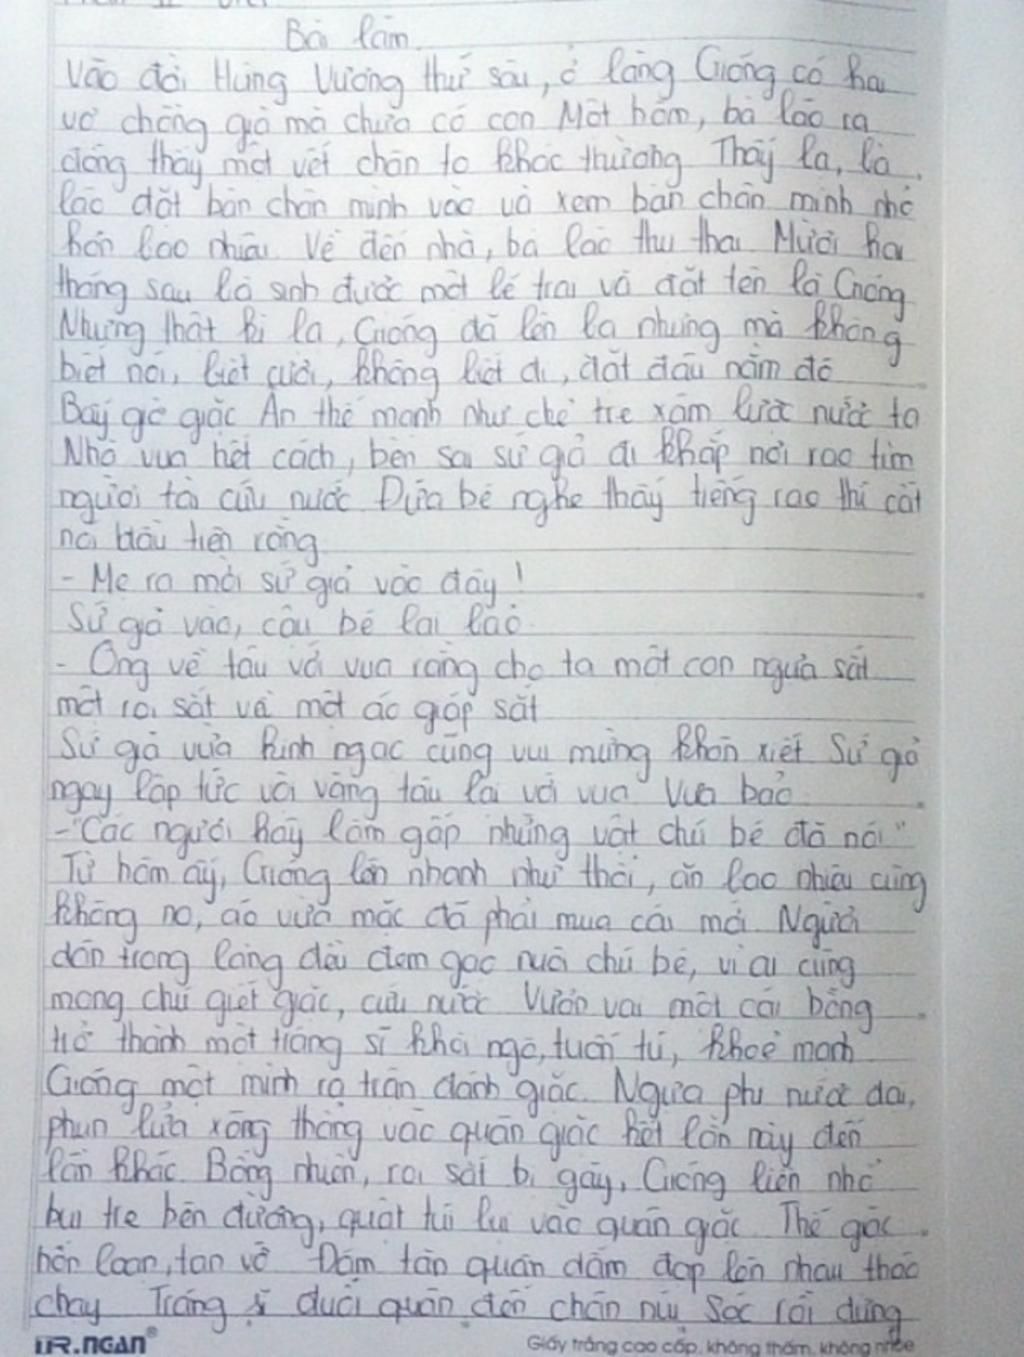 Bài làm
Vào đời Hùng Vương thứ sáu, ở làng Gióng có hai
vợ chồng già mà chưa có con Một hôm, bà lão ra
đồng thấy một vết chân to khác thường Thấy lạ, bà
lão đặt bàn chân mình vào và xem bàn chân mình nhỏ
hơn bao nhiêu Về đến nhà, bà lão thụ thai Mười hai
tháng sau bà sinh được một bé trai và đặt tên là Gióng
Nhưng thật kì lạ, Gióng đã lên ba nhưng mà không
biết nói, biết cười, không biết đi, đặt đâu nằm đó
Bấy giờ giặc Ân thế mạnh như chẻ tre xâm lược nước ta
Nhà vua hết cách, bèn sai sứ giả đi khắp nơi rao tìm
người tài cứu nước Đứa bé nghe thấy tiếng rao thì cất
nói đầu tiên rằng
- Mẹ ra mời sứ giả vào đây!
Sứ giả vào, cậu bé lại bảo
- Ông về tâu với vua rằng cho ta một con ngựa sắt
một roi sắt và một áo giáp sắt
Sứ giả vừa kinh ngạc cũng vui mừng khôn xiết Sứ giả
ngay lập tức vội vàng tâu lại với vua Vua bảo
-"Các ngươi hãy làm gấp những vật chú bé đã nói"
Từ hôm ấy, Gióng lớn nhanh như thổi, ăn bao nhiêu cũng
không no, áo vừa mặc đã phải mua cái mới Người
dân trong làng đều đem gạo nuôi chú bé, vì ai cũng
mong chú giết giặc, cứu nước Vươn vai một cái bỗng
trở thành một tráng sĩ khôi ngô, tuấn tú, khoẻ mạnh
Gióng một mình ra trận đánh giặc. Ngựa phi nước đại,
phun lửa xông thẳng vào quân giặc hết lần này đến
lần khác Bỗng nhiên, roi sắt bị gãy, Gióng liền nhổ
bụi tre bên đường, quật túi bụi vào quân giặc Thế giặc
hỗn loạn, tan vỡ Đám tàn quân dẫm đạp lên nhau tháo
chạy Tráng sĩ đuổi quân đến chân núi Sóc rồi dừng
DR.NGAN®
Giấy trắng cao cấp, không thấm, không nhòe